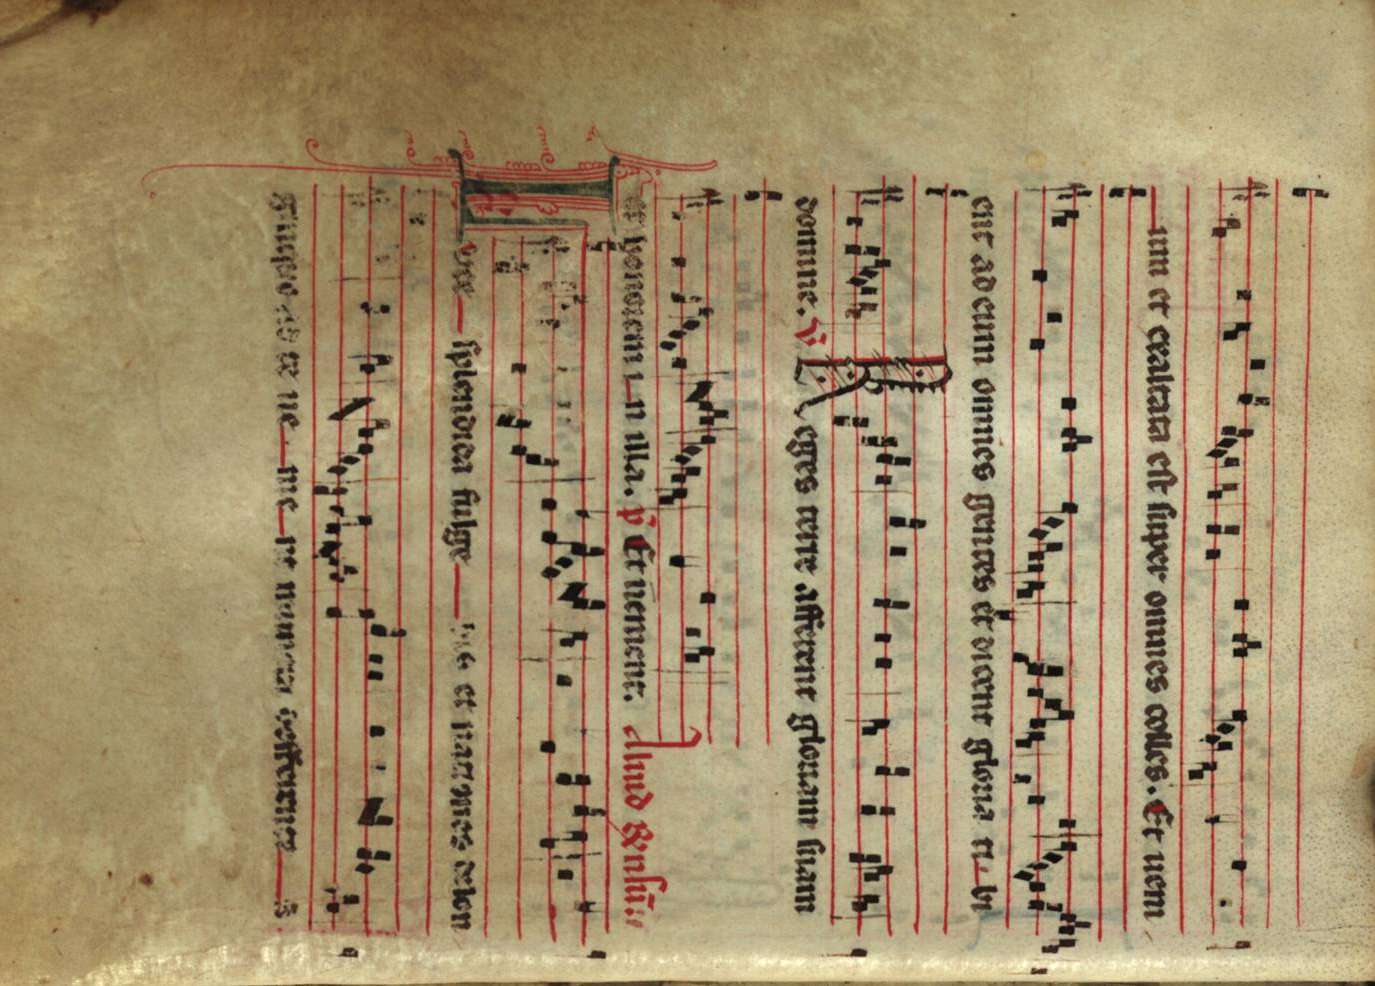 um et exaltata est super omnes colles. Et veni
ent ad eum omnes gentes et dicent gloria ti bi
domine. v Reges terre afferent gloriam suam
et honorem i n illa. p Et venient. Aliud Rensu
L uce splendida fulge bis et nationes de lon
ginquo ad te ve ni e nt munera defferentes